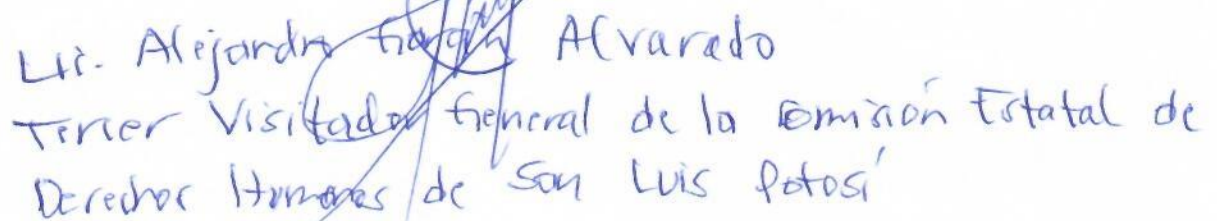 Lic. Alejandro Alvarado
Tercer Visitador General de la Comisión Estatal de
Derechos Humanos de San Luis Potosí